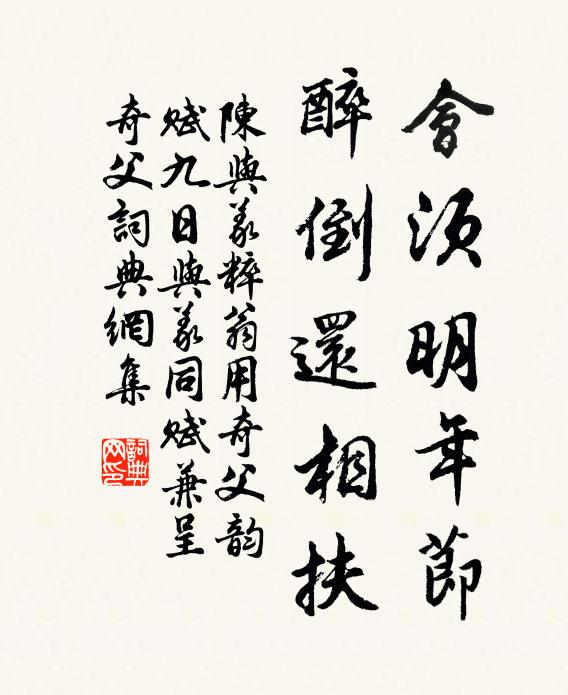 會須明年節
醉倒還相扶
陳與義粹翁用奇父韵
賦九日與義同賦兼呈
奇父詞典網集
詞典网印